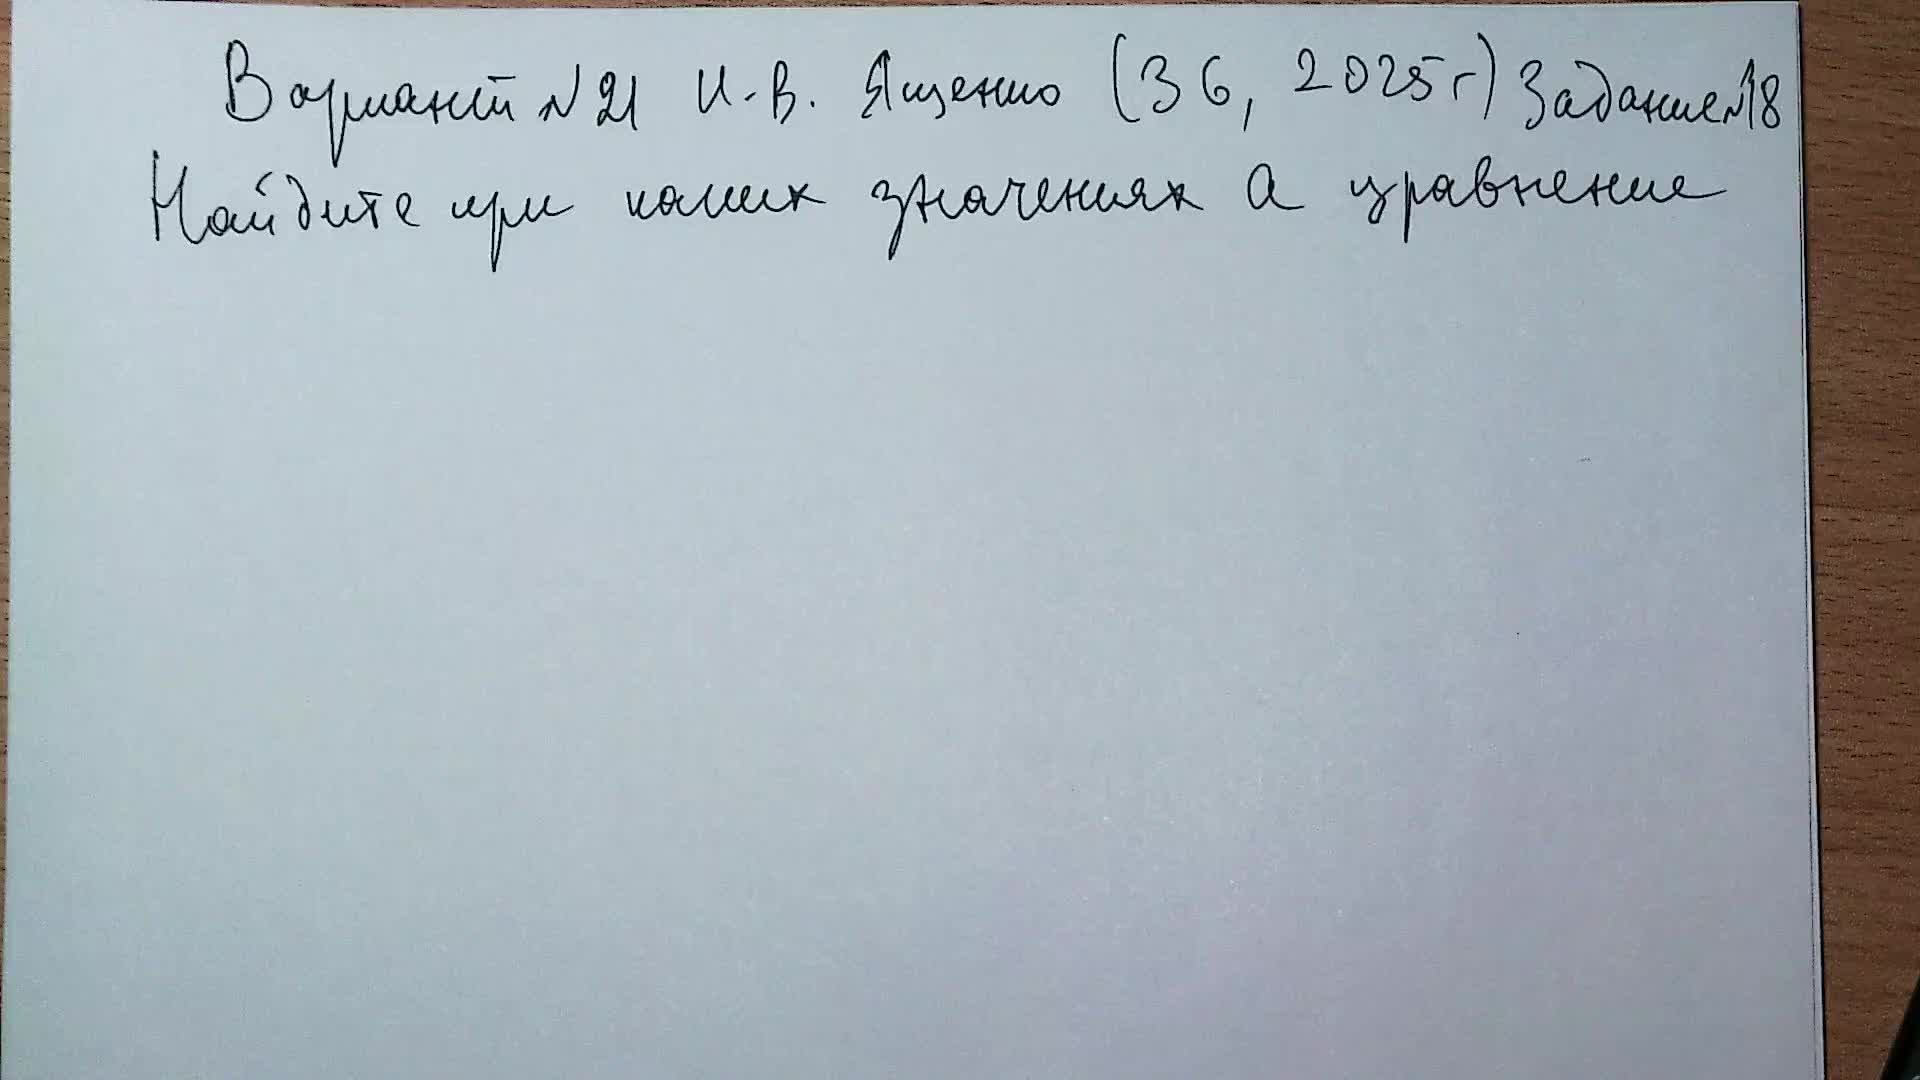 Вариант №21 И.В. Ященко (36, 2025г) Задание №18
Найдите при каких значениях а уравнение